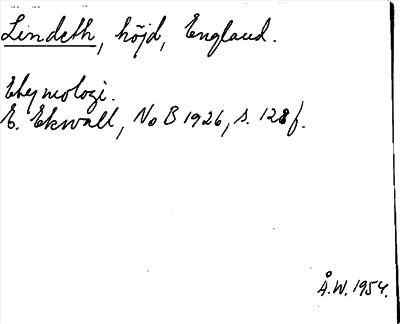 Lindeth, höjd, England.
Etymologi.
E. Ekwall, NoB 1926, s. 128 f.
Å.W. 1954.